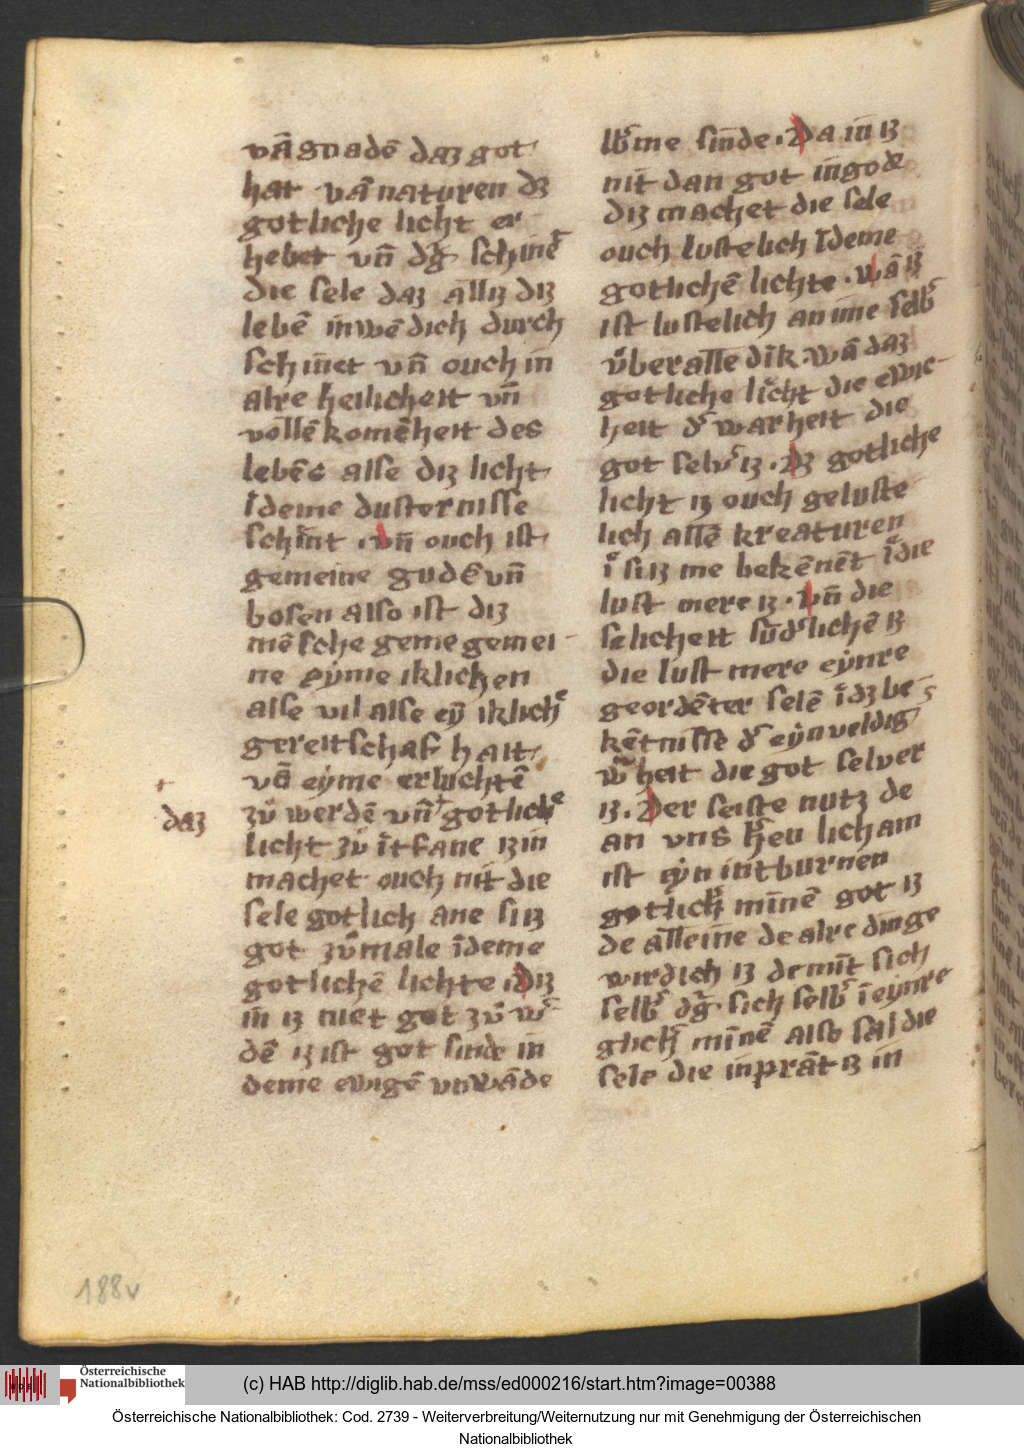 vā gnadē daz got
hat vā naturen dz
gotliche licht er
hebet vn̄ dʒ schinē
die sele daz alliz diz
lebē inwēdich durch
schinet vn̄ ouch in
alre heilicheit vn̄
vollēkomēheit des
lebēs alse diz licht
ideme dusternisse
schint . vn̄ ouch ist
gemeine gudē vn̄
bosen also ist diz
mēsche geme gemei-
ne eyme iklichen
alse vil alse ey̅ iklichͤ
gereitschaf hait.
vā eyme erluchtē
+ daz
zů werdē vn̄ + gotlichͤ
licht zů ītfane iz in
machet ouch nit die
sele gotlich ane si iz
got zůmale īdeme
gotlichē lichte . Diz
in̄ iz tuet got zů w
dē iz ist got sinde in
deme ewigē vnwāde
lbme sinde . Da in iz
nit dan got in gode
diz machet die sele
ouch lustelich īdeme
gotlichē lichte . wā iz
ist lustelich an ime selb
ůberalle dīk . wā daz
gotliche licht die ewic-
heit d' warheit die
got selv' iz . Dz gotliche
licht iz ouch geluste
lich allē kreaturen
ī si iz me bekēnēt ī die
lust mere iz . vn̄ die
selicheit sūd'lichē iz
die lust mere eynre
geordēter selē ī dz be-
kētnisse d' eynveldig
w'heit die got selver
iz . Der seiste nutz de
an vns h'en licham
ist eyn intburnen
gotlich' mīnē got iz
de alleine de alre dinge
wirdich iz de mit sich
selb' dʒ sich selb' ī eynre
glich' mīnē also sal die
sele die in prāt iz in
188v
(c) HAB http://diglib.hab.de/mss/ed000216/start.htm?image=00388
Österreichische
Nationalbibliothek
Österreichische Nationalbibliothek: Cod. 2739 - Weiterverbreitung/Weiternutzung nur mit Genehmigung der Österreichischen
Nationalbibliothek